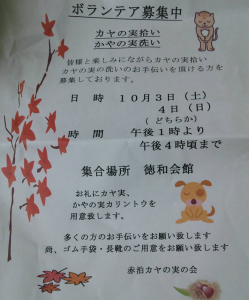 ボランテア募集中
カヤの実拾い
かやの実洗い
皆様と楽しみにながらカヤの実拾い
カヤの実の洗いのお手伝いを頂ける方を
募集しております。
日 時 10月3日(土)
4日(日)
(どちらか)
時間 午後1時より
午後4時頃まで
集合場所 徳和会館
お礼にカヤ実、
かやの実カリントウを
用意致します。
多くの方のお手伝いをお願い致します
尚、ゴム手袋・長靴のご用意をお願い致します
赤泊カヤの実の会